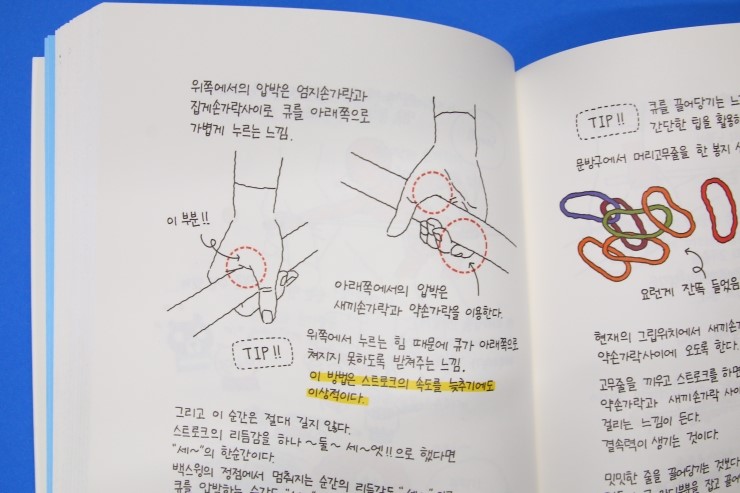 위쪽에서의 압박은 엄지손가락과
집게손가락사이로 큐를 아래쪽으로
가볍게 누르는 느낌.
이 부분!!
아래쪽에서의 압박은
새끼손가락과 약손가락을 이용한다.
TIP!!
위쪽에서 누르는 힘 때문에 큐가 아래쪽으로
쳐지지 못하도록 받쳐주는 느낌.
이 방법은 스트로크의 속도를 늦추기에도
이상적이다.
그리고 이 순간은 절대 길지 않다.
스트로크의 리듬감을 하나~둘~세~엣!!으로 했다면
"세~"의 한순간이다.
백스윙의 정점에서 멈춰지는 순간의 리듬감도
큐를 압박하는 순간도
TIP!!
큐를 끌어당기는
간단한 팁을
문방구에서 머리고무줄을 한 봉지
요런게 잔뜩 들었음
현재의 그립위치에서
약손가락사이에 오도록 한다.
고무줄을 끼우고 스트로크를
약손가락과 새끼손가락
걸리는 느낌이 든다.
결속력이 생기는 것이다.
밋밋한 줄을 끌어당기는 것보다
잡고